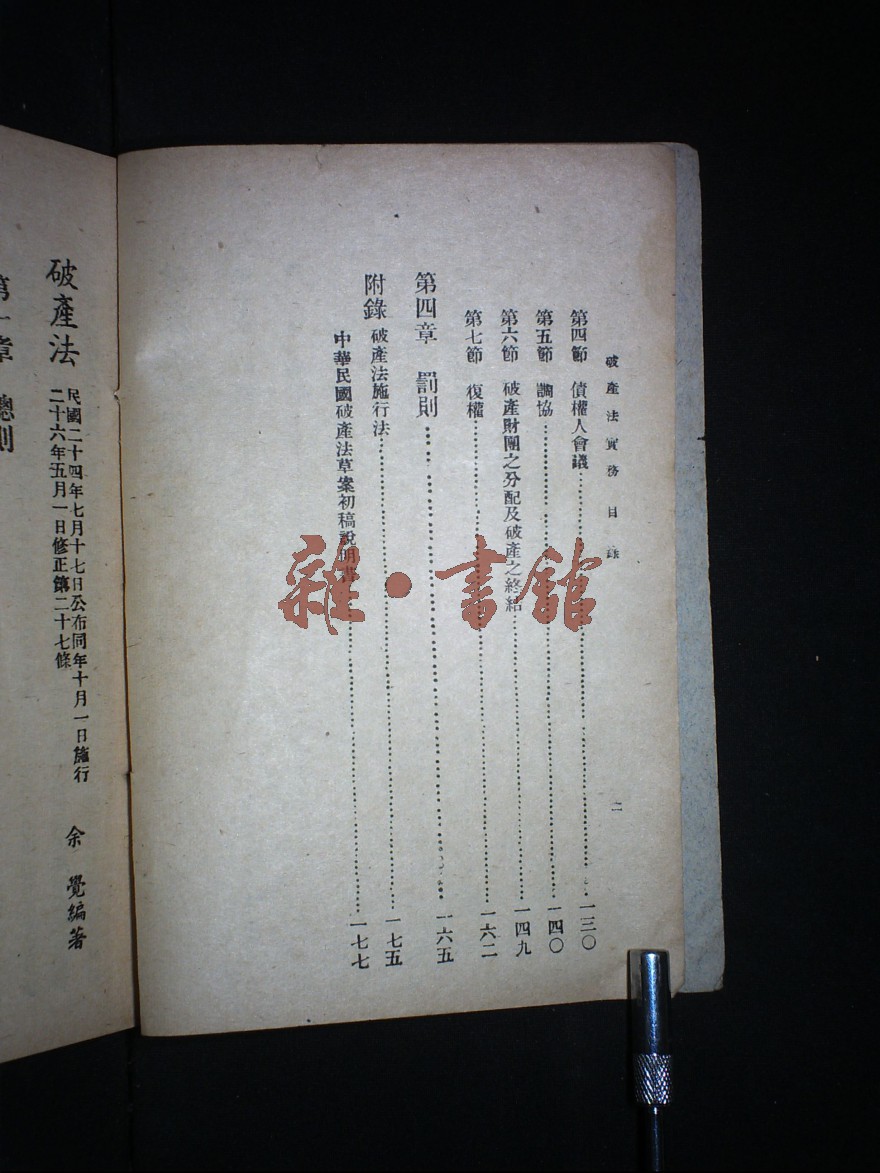 破產法實務目錄
二
第四節 債權人會議……一三〇
第五節 調協……一四〇
第六節 破產財團之分配及破產之終結……一四九
第七節 復權……一六二
第四章 罰則……一六五
附錄 破產法施行法……一七五
中華民國破產法草案初稿說明書……一七七
雜·書館
破產法
民國二十四年七月十七日公布同年十月一日施行
二十六年五月一日修正第二十七條
余覺編著
第一章 總則